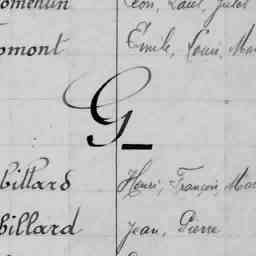 Léon, Paul, Jules
omont Emile, Louis, Mar
G
billard Henri, François, Mar
billard Jean, Pierre